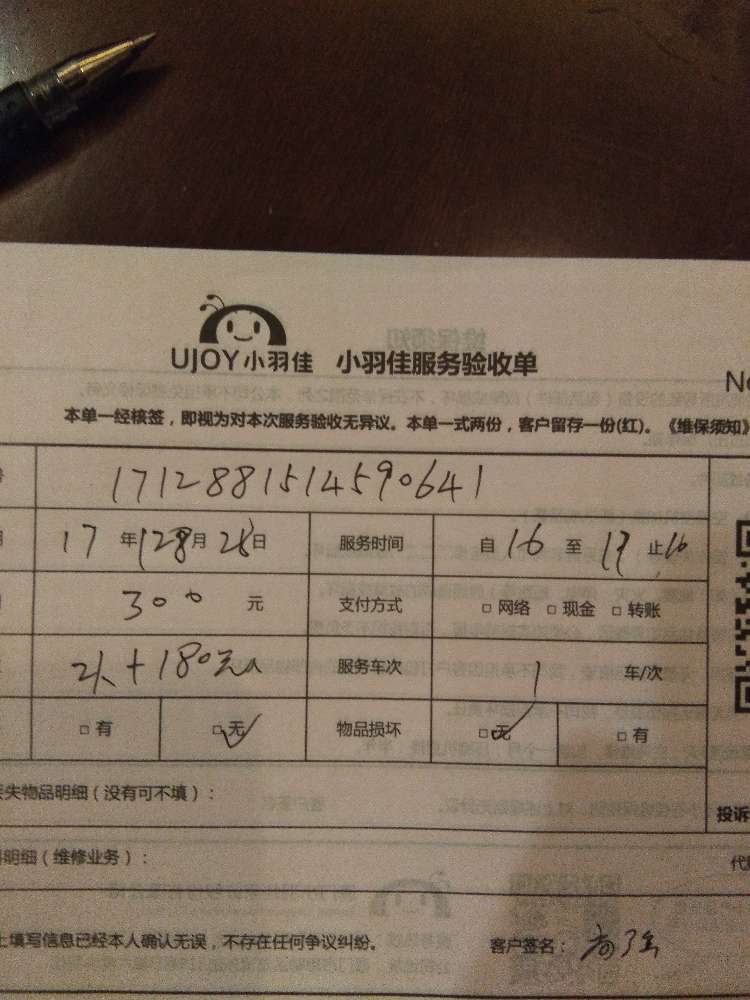 UJOY小羽佳 小羽佳服务验收单
No
本单一经核签，即视为对本次服务验收无异议。本单一式两份，客户留存一份(红)。《维保须知》
1712881514590641
17年128月28日 服务时间 自16至17止
300元 支付方式 □网络 □现金 □转账
2人+180元 服务车次 1车/次
□有 □无 物品损坏 □无 □有
失物品明细（没有可不填）：
投诉
明细（维修业务）：
上填写信息已经本人确认无误，不存在任何争议纠纷。 客户签名：